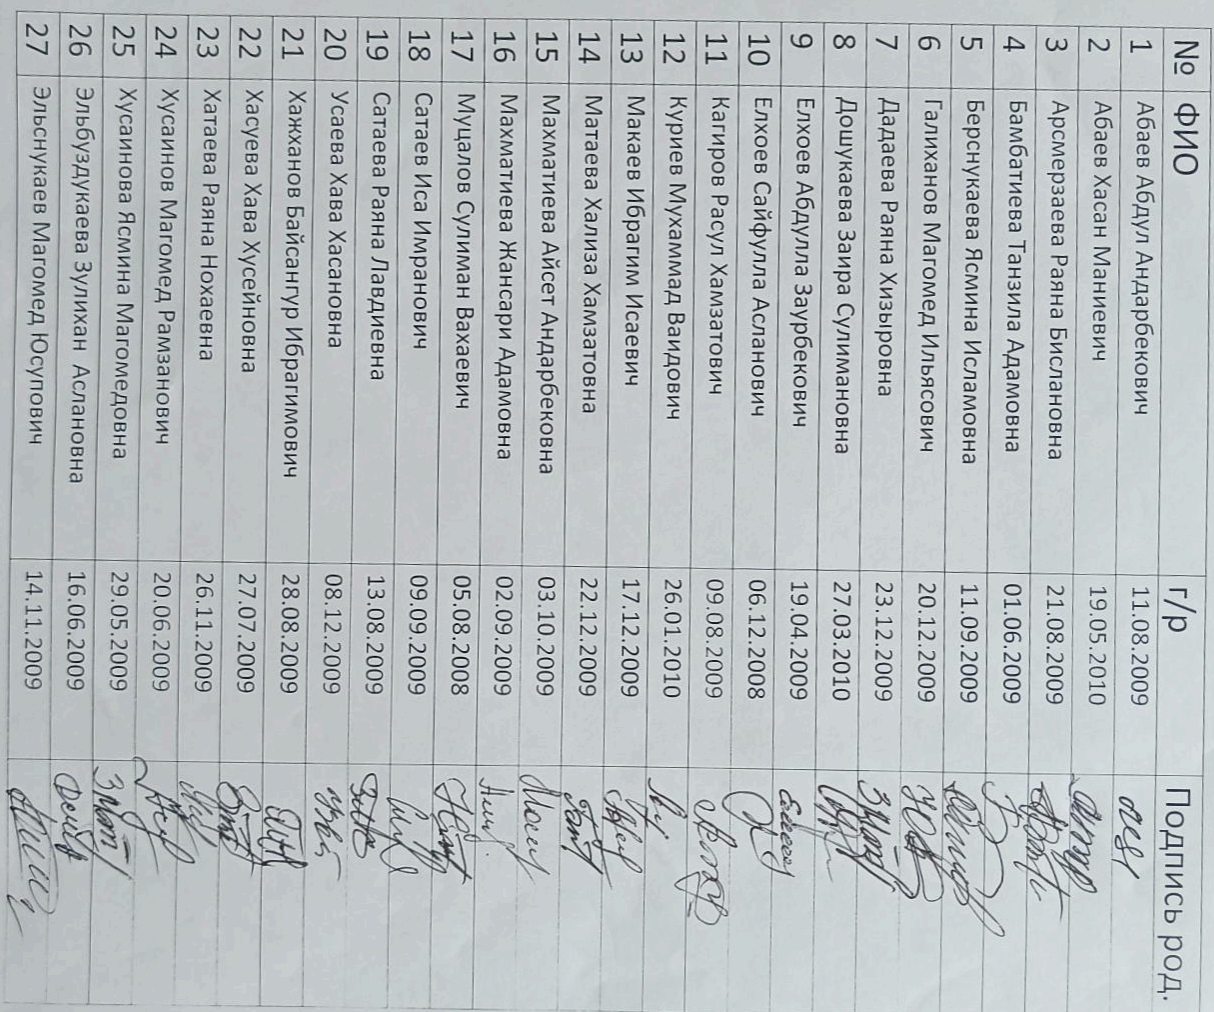 № ФИО г/р Подпись род.
1 Абаев Абдул Андарбекович 11.08.2009
2 Абаев Хасан Маниевич 19.05.2010
3 Арсмерзаева Раяна Бислановна 21.08.2009
4 Бамбатиева Танзила Адамовна 01.06.2009
5 Берснукаева Ясмина Исламовна 11.09.2009
6 Галиханов Магомед Ильясович 20.12.2009
7 Дадаева Раяна Хизыровна 23.12.2009
8 Дошукаева Заира Сулимановна 27.03.2010
9 Елхоев Абдулла Заурбекович 19.04.2009
10 Елхоев Сайфулла Асланович 06.12.2008
11 Кагиров Расул Хамзатович 09.08.2009
12 Куриев Мухаммад Ваидович 26.01.2010
13 Макаев Ибрагим Исаевич 17.12.2009
14 Матаева Хализа Хамзатовна 22.12.2009
15 Махматиева Айсет Андарбековна 03.10.2009
16 Махматиева Жансари Адамовна 02.09.2009
17 Муцалов Сулиман Вахаевич 05.08.2008
18 Сатаев Иса Имранович 09.09.2009
19 Сатаева Раяна Лавдиевна 13.08.2009
20 Усаева Хава Хасановна 08.12.2009
21 Хажханов Байсангур Ибрагимович 28.08.2009
22 Хасуева Хава Хусейновна 27.07.2009
23 Хатаева Раяна Нохаевна 26.11.2009
24 Хусаинов Магомед Рамзанович 20.06.2009
25 Хусаинова Ясмина Магомедовна 29.05.2009
26 Эльбуздукаева Зулихан Аслановна 16.06.2009
27 Эльснукаев Магомед Юсупович 14.11.2009